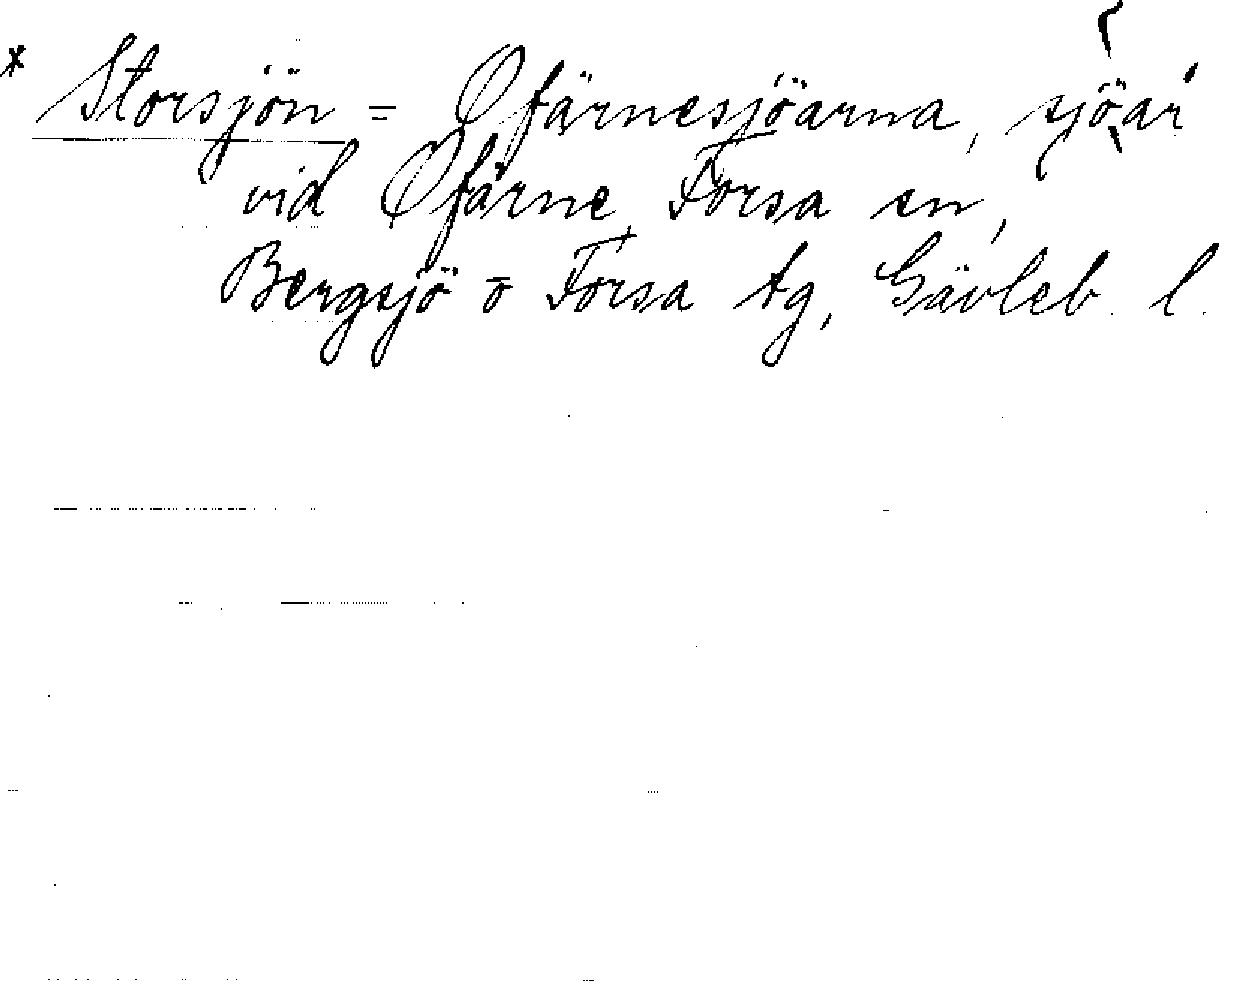 * Storsjön = Ofärnesjöarna, sjöar
vid Ofärne, Forsa sn,
Bergsjö o Forsa tg, Gävleb. l.